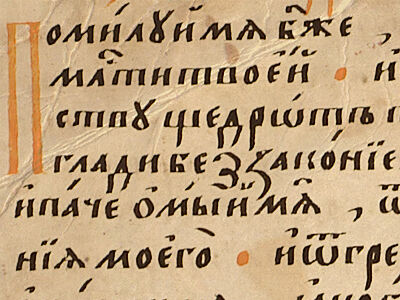 Помилꙋй мѧ б҃же ,
млⷭ҇ти твоеѝ · и҆
ствꙋ щедрѡ́тъ
глади беззако́нїе
и҆па́че ѻ҆мы́й мѧ̀ , ѿ
нїѧ моегѡ̀ · и҆ ѿгре